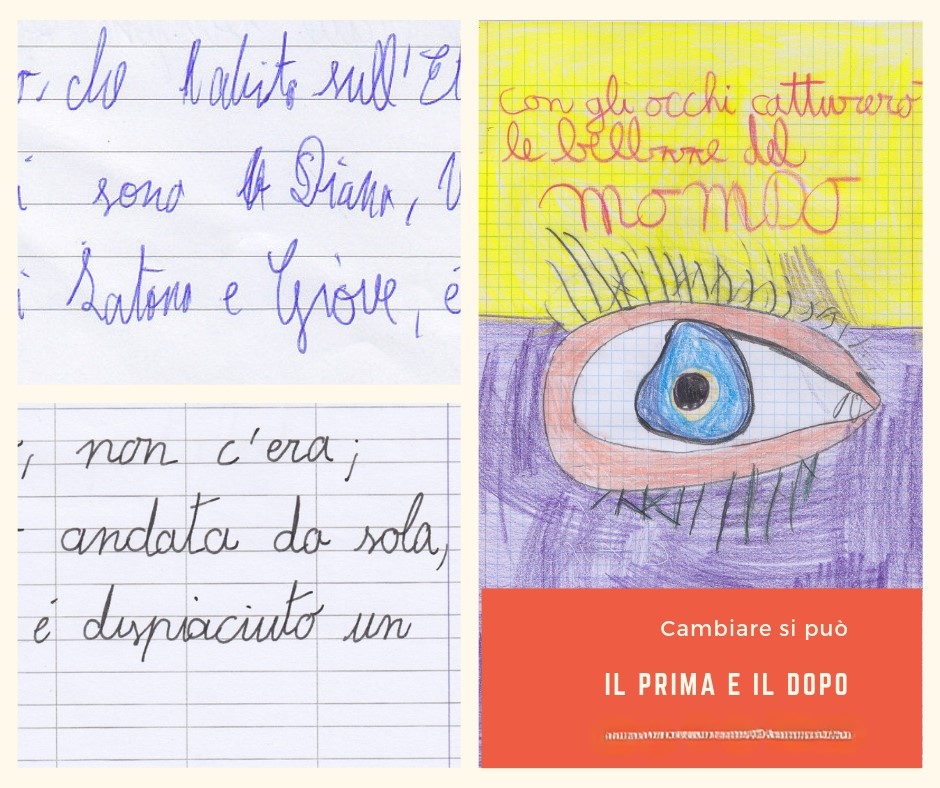 che habito sull'Et
i sono A Diana, V
i Satono e Giove, è
, non c'era;
andata da sola,
è dispiaciuto un
con gli occhi catturerò
le bellezze del
MONDO
Cambiare si può
IL PRIMA E IL DOPO